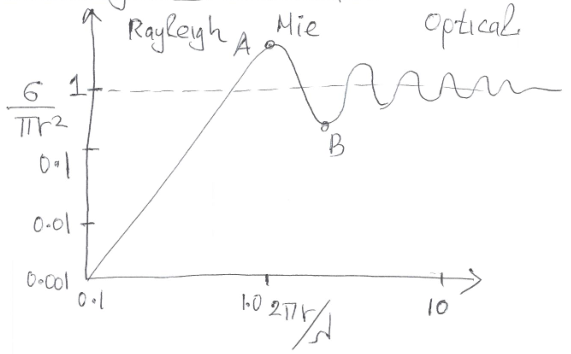 Rayleigh A Mie Optical
σ/πr² 1
B
0.1
0.01
0.001
0.1 1.0 2πr/λ 10